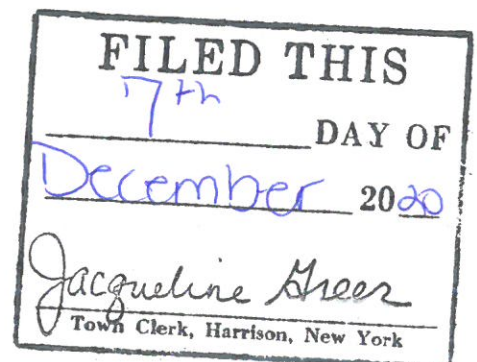 FILED THIS
17th DAY OF
December 2020
Jacqueline Greer
Town Clerk, Harrison, New York